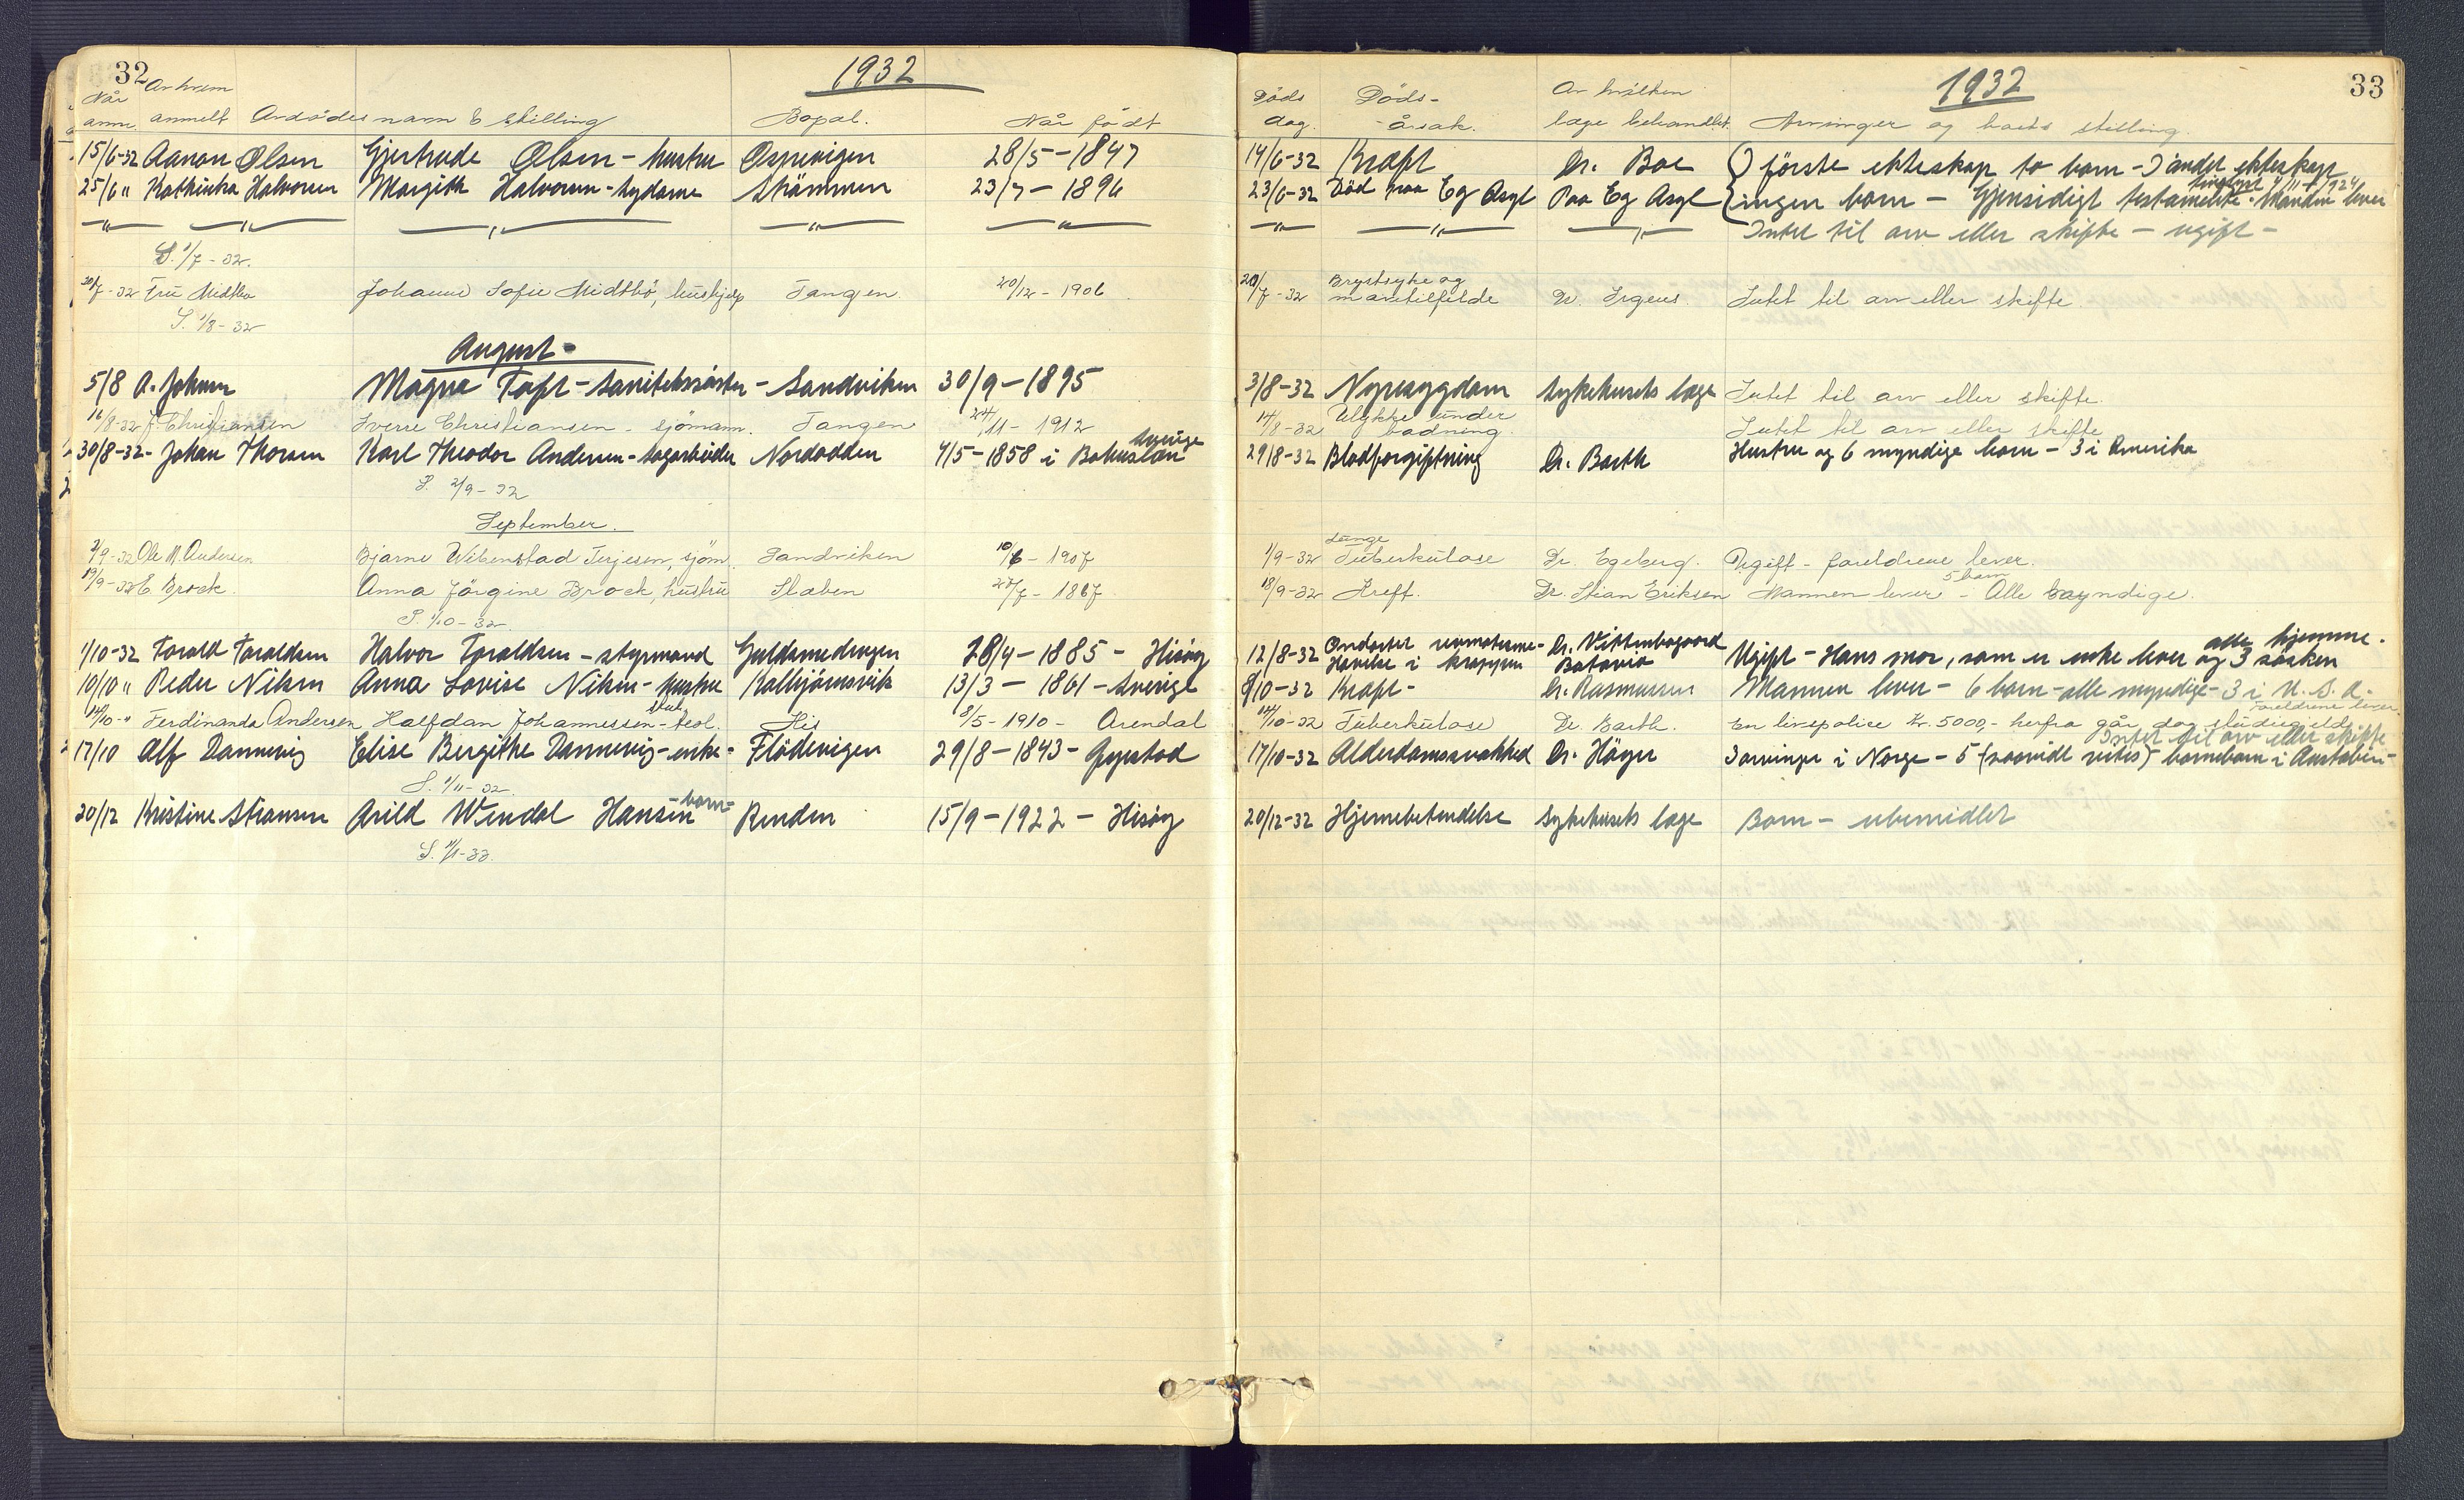 32 1932
Når Av hvem
anm. anmelt Avdödes navn & stilling Bopæl. Når födt
15/6-32 Aanon Olsen Gjertrude Olsen - hustru Ospevigen 28/5 - 1847
25/6 " Kathinka Halvorsen Margith Halvorsen - sydame Strömmen 23/7 - 1896
— " — — " — — " — — " — — " —
S. 1/7 - 32.
20/7 - 32 Fru Midtbö Johanne Sofie Midtbö, hushjelp Tangen 20/12 - 1906
S. 1/8 - 32
August -
5/8 A. Johnsen Magna Toft - sanitetssöster - Sandviken 30/9 - 1895
16/8-32 J. Christiansen Sverre Christiansen - sjömann. Tangen 24/11 - 1912
30/8-32- Johan Thorsen Karl Theodor Andersen - sagarbeider Nordodden 4/5 - 1858 i Bohuslän Sverige
S. 2/9 - 32
September.
2/9-32 Ole M. Andersen Bjarne Wibenstad Terjesen, sjöm. Sandviken 10/6 - 1907
19/9-32 E. Brock. Anna Jörgine Brock, hustru Staben 28/7 - 1867
S. 1/10 - 32.
1/10-32 Torald Toraldsen Halvor Toraldsen - styrmand Guldsmedengen 28/4 - 1885 - Hisöy
10/10 " Peder Nilsen Anna Lovise Nilsen - hustru Kolbjörnsvik 13/3 - 1861 - Sverige
14/10 - " Ferdinanda Andersen Halfdan Johannessen - stud. teol. His 8/5 - 1910 - Arendal
17/10 Alf Dannevig Elise Bergithe Dannevig - enke - Flödevigen 29/8 - 1843 - Gjerstad
S. 1/11 - 32.
20/12 Kristine Hansen Arild Wendal Hansen - barn - Renden 15/9 - 1922 - Hisöy
S. 1/1 - 33.
1932 33
Döds Döds- Av hvilken
dag. -årsak. læge behandlet. Arvinger og boets stilling.
14/6-32 Kræft Dr. Boe I förste ekteskap to barn - I andet ekteskap
23/6-32 Död paa Eg Asyl Paa Eg Asyl ingen barn - Gjensidigt testamente tinglyst 1924 - Manden lever
— " — — " — — " — Intet til arv eller skifte - ugift -
20/7 - 32 Brystsyke og Dr. Irgens. Intet til arv eller skifte.
3/8-32 Nyresygdom Sykehusets læge Intet til arv eller skifte.
14/8-32 Ulykke under badning. Intet til arv eller skifte
29/8-32 Blodforgiftning Dr. Barth Hustru og 6 myndige barn - 3 i Amerika
1/9-32 Lunge Tuberkulose Dr. Egeberg. Ugift - foreldrene lever.
18/9-32 Kreft. Dr. Stian Eriksen Mannen lever - 5 barn Alle myndige.
12/8-32 Ondartet Dr. Wittenbogaard alle hjemme.
Hævelse i kroppen Batavia Ugift - Hans mor, som er enke lever og 3 sösken
8/10-32 Kræft - Dr. Rasmussen Mannen lever - 6 barn - alle myndige - 3 i U.S.A.
Foreldrene lever.
14/10-32 Tuberkulose Dr. Barth. En livspolice Kr. 5000,- herfra går dog studiegjeld.
Intet til arv eller skifte
17/10-32 Alderdomssvakhed Dr. Höyer 3 arvinger i Norge - 5 (saavidt vites) barnebarn i Australien -
20/12-32 Hjernebetendelse Sykehusets læge Barn - ubemidlet